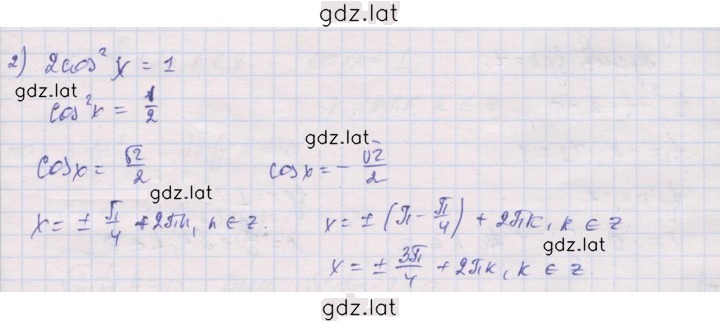 gdz.lat
2) 2cos²x = 1
gdz.lat
cos²x = 1/2
gdz.lat
cosx = √2/2 cosx = - √2/2
gdz.lat
x = ± π/4 + 2πn, n ∈ z. x = ± (π - π/4) + 2πk, k ∈ z
gdz.lat
x = ± 3π/4 + 2πk, k ∈ z.
gdz.lat